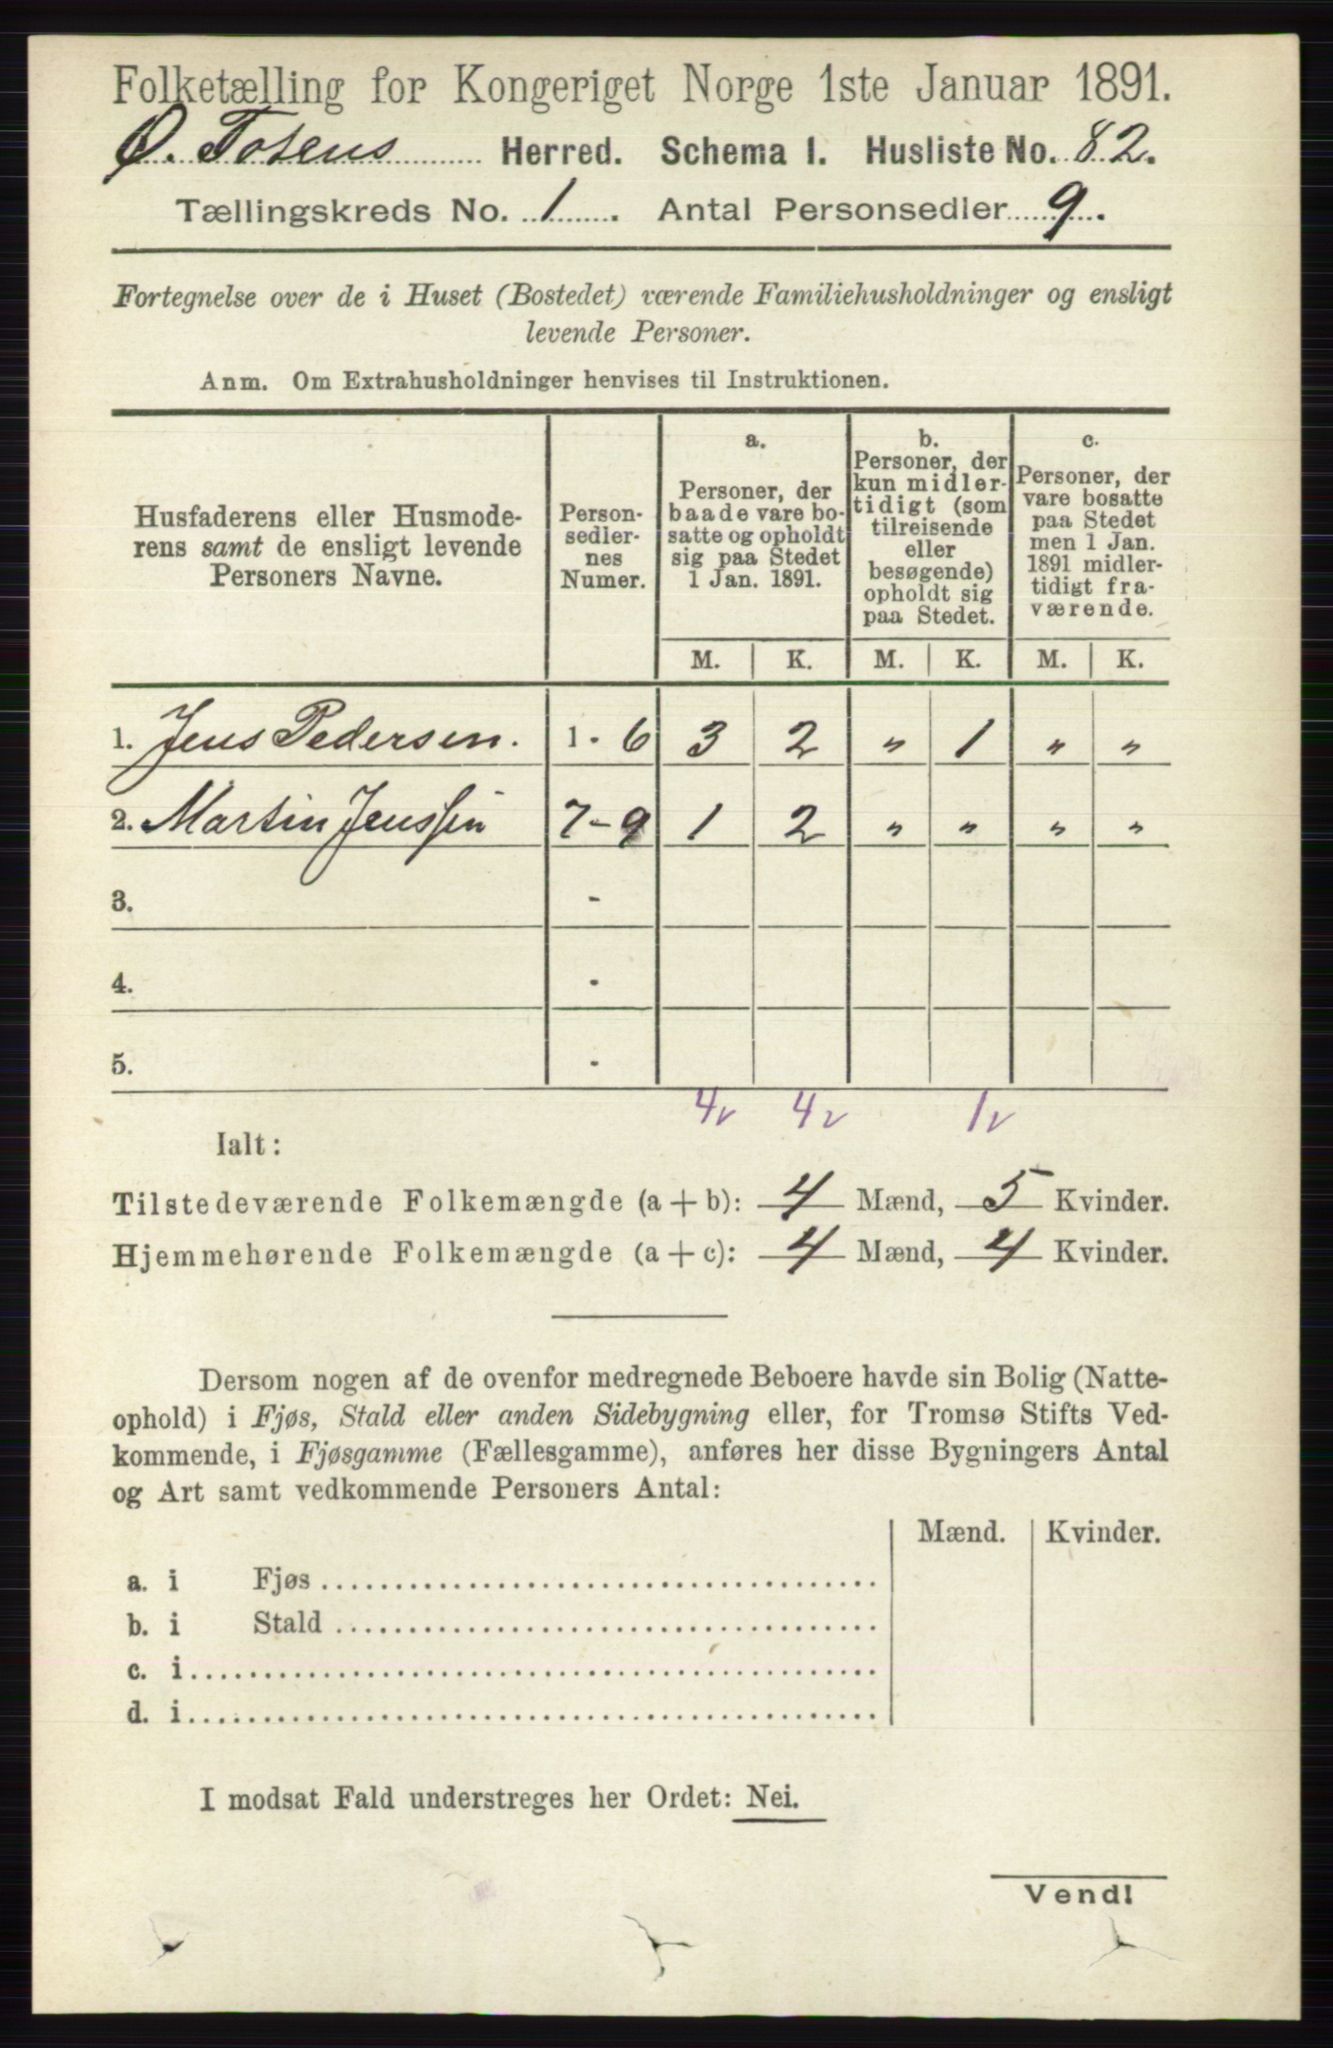 Folketælling for Kongeriget Norge 1ste Januar 1891.
Ø. Totens Herred. Schema I. Husliste No. 82.
Tællingskreds No. 1. Antal Personsedler 9.
Fortegnelse over de i Huset (Bostedet) værende Familiehusholdninger og ensligt
levende Personer.
Anm. Om Extrahusholdninger henvises til Instruktionen.
Husfaderens eller Husmode-
rens samt de ensligt levende
Personers Navne.
Person-
sedler-
nes
Numer.
a.
Personer, der
baade vare bo-
satte og opholdt
sig paa Stedet
1 Jan. 1891.
b.
Personer, der
kun midler-
tidigt (som
tilreisende
eller
besøgende)
opholdt sig
paa Stedet.
c.
Personer, der
vare bosatte
paa Stedet
men 1 Jan.
1891 midler-
tidigt fra-
værende.
M. K. M. K. M. K.
1. Jens Pedersen. 1 - 6 3 2 „ 1 „ „
2. Martin Jenssen 7 - 9 1 2 „ „ „ „
3. -
4. -
5. -
4v 4v 1v
Ialt:
Tilstedeværende Folkemængde (a + b): 4 Mænd, 5 Kvinder.
Hjemmehørende Folkemængde (a + c): 4 Mænd, 4 Kvinder.
Dersom nogen af de ovenfor medregnede Beboere havde sin Bolig (Natte-
ophold) i Fjøs, Stald eller anden Sidebygning eller, for Tromsø Stifts Ved-
kommende, i Fjøsgamme (Fællesgamme), anføres her disse Bygningers Antal
og Art samt vedkommende Personers Antal:
Mænd. Kvinder.
a. i Fjøs
b. i Stald
c. i
d. i
I modsat Fald understreges her Ordet: Nei.
Vend!